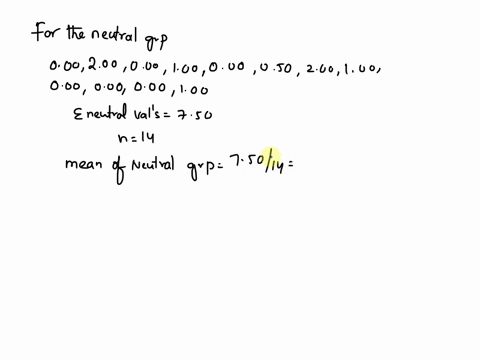 For the neutral grp
0.00, 2.00, 0.00, 1.00, 0.00, 0.50, 2.00, 1.00,
0.00, 0.00, 0.00, 1.00
Σ neutral val's = 7.50
n = 14
mean of Neutral grp = 7.50/14 =